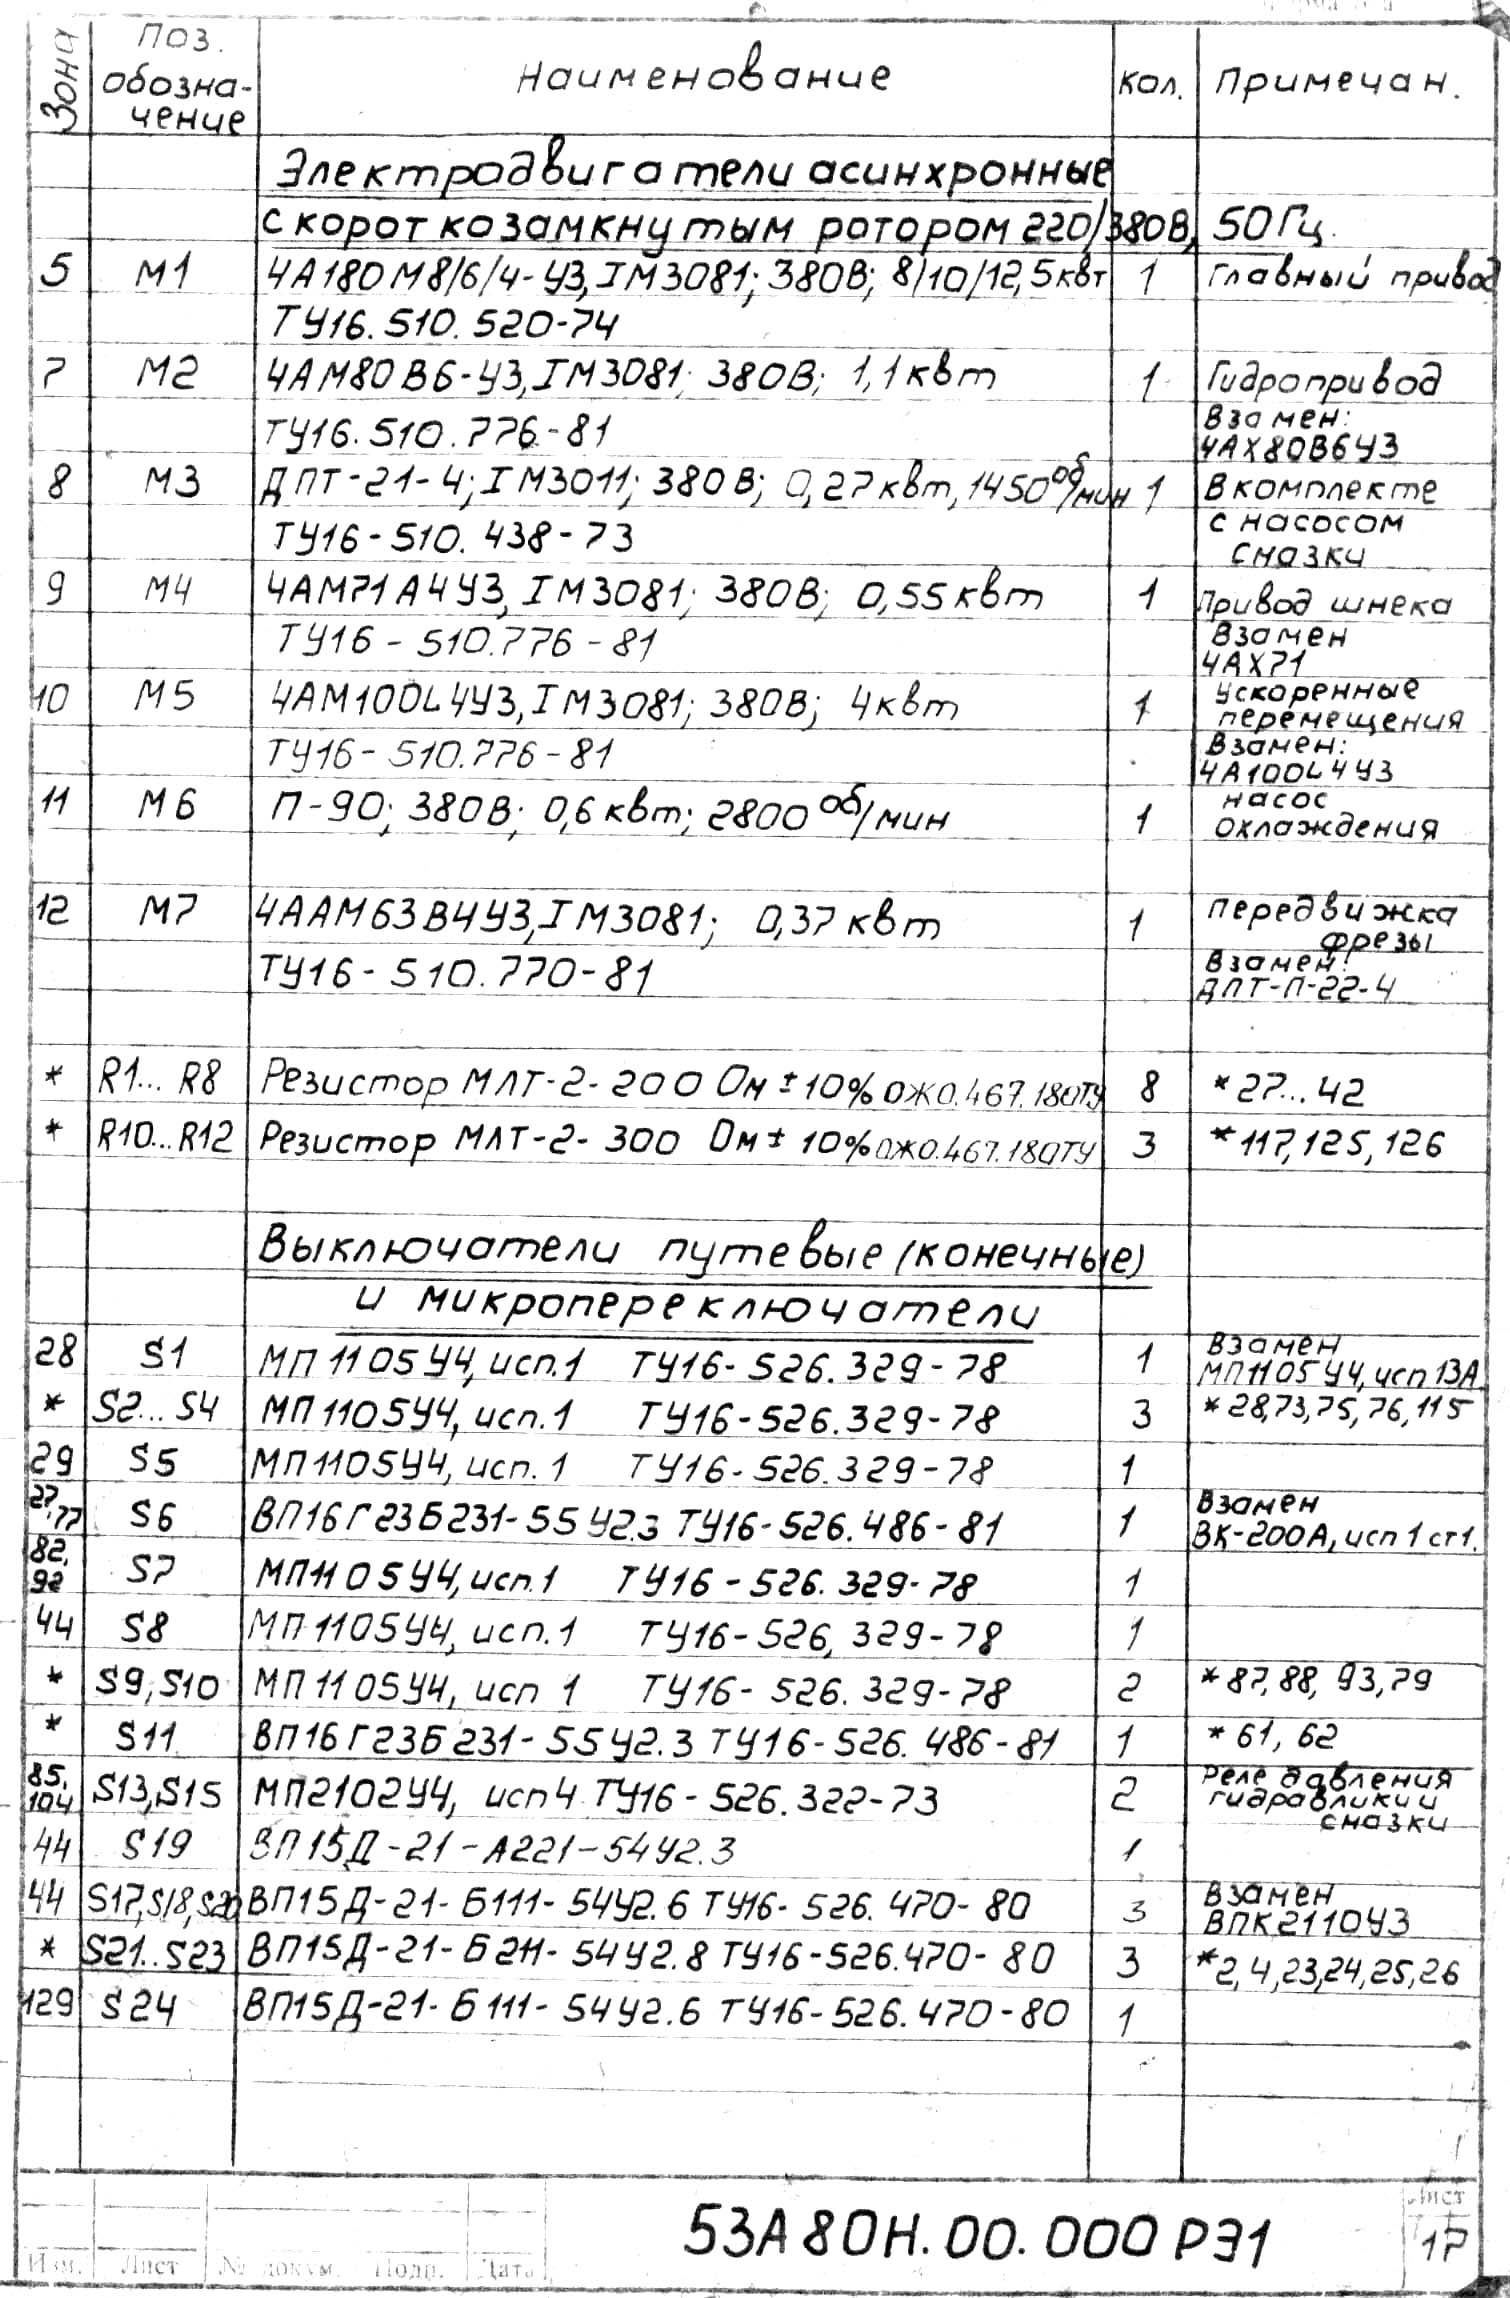 Зона
Поз. обозна-чение
Наименование
Кол.
Примечан.
Электродвигатели асинхронные
с короткозамкнутым ротором 220/380В, 50Гц.
5 М1 4А180М8/6/4-У3, IМ3081; 380В; 8/10/12,5квт 1 Главный привод
ТУ16.510.520-74
7 М2 4АМ80В6-У3, IМ3081; 380В; 1,1квт 1 Гидропривод
ТУ16.510.776-81 Взамен:
4АХ80В6У3
8 М3 ДПТ-21-4; IМ3011; 380В; 0,27квт, 1450об/мин 1 В комплекте
ТУ16-510.438-73 с насосом
смазки
9 М4 4АМ71А4У3, IМ3081; 380В; 0,55квт 1 Привод шнека
ТУ16-510.776-81 Взамен
4АХ71
10 М5 4АМ100L4У3, IМ3081; 380В; 4квт 1 Ускоренные
перемещения
ТУ16-510.776-81 Взамен:
4А100L4У3
11 М6 П-90; 380В; 0,6квт; 2800об/мин 1 насос
охлаждения
12 М7 4ААМ63В4У3, IМ3081; 0,37квт 1 Передвижка
фрезы
ТУ16-510.770-81 Взамен:
ДПТ-П-22-4
* R1...R8 Резистор МЛТ-2-200 Ом ±10% ОЖ0.467.180ТУ 8 *27...42
* R10...R12 Резистор МЛТ-2-300 Ом ± 10% ОЖ0.467.180ТУ 3 *117,125,126
Выключатели путевые (конечные)
и микропереключатели
28 S1 МП1105У4, исп.1 ТУ16-526.329-78 1 Взамен
МП1105У4, исп 13А.
* S2...S4 МП1105У4, исп.1 ТУ16-526.329-78 3 *28,73,75,76,115
29 S5 МП1105У4, исп.1 ТУ16-526.329-78 1
27,77 S6 ВП16Г23Б231-55У2.3 ТУ16-526.486-81 1 Взамен
ВК-200А, исп 1 ст1.
82,92 S7 МП1105У4, исп.1 ТУ16-526.329-78 1
44 S8 МП1105У4, исп.1 ТУ16-526,329-78 1
* S9,S10 МП1105У4, исп 1 ТУ16-526.329-78 2 *87,88,93,79
* S11 ВП16Г23Б231-55У2.3 ТУ16-526.486-81 1 *61,62
85,104 S13,S15 МП2102У4, исп4 ТУ16-526.322-73 2 Реле давления
гидравлики и
смазки
44 S19 ВП15Д-21-А221-54У2.3 1
44 S17,S18,S20 ВП15Д-21-Б111-54У2.6 ТУ16-526.470-80 3 Взамен
ВПК2110У3
* S21..S23 ВП15Д-21-Б211-54У2.8 ТУ16-526.470-80 3 *2,4,23,24,25,26
129 S24 ВП15Д-21-Б111-54У2.6 ТУ16-526.470-80 1
53А80Н.00.000РЭ1
Лист
17
Изм. Лист № докум. Подп. Дата